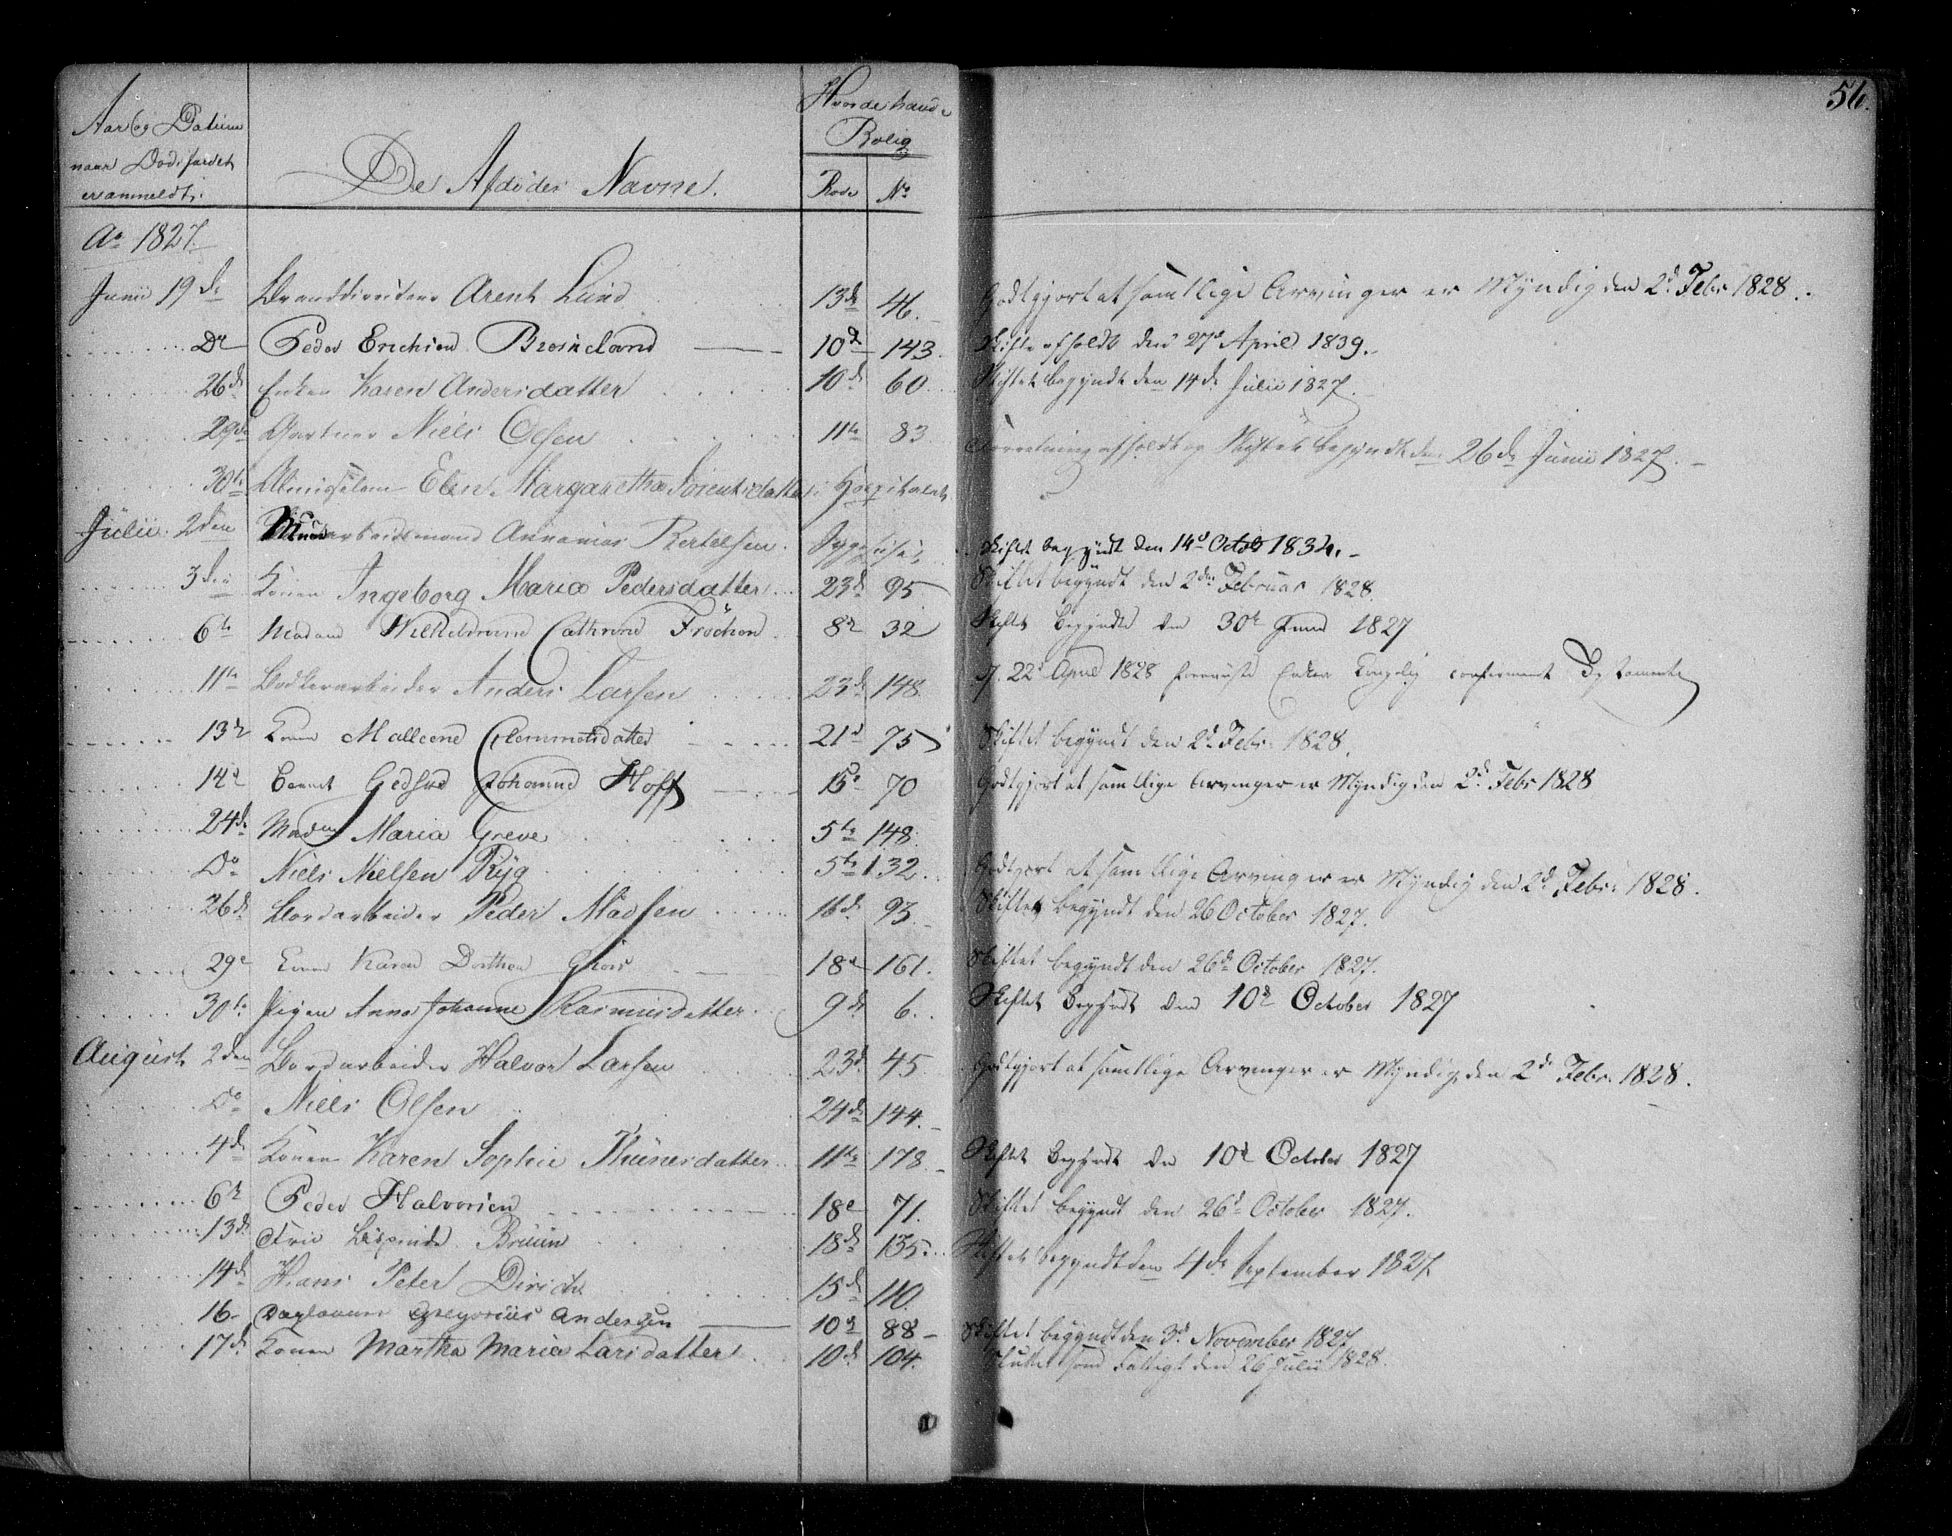 56.
Aar og Datum
naar Dødsfaldet
er anmeldt.
De Afdødes Navne.
Hvor de havde
Bolig
Rode No
Ao 1827.
Junii 19de Branddirecteur Arent Lund 13de 46. Godtgjort at samtlige Arvinger er Myndig den 2d Febr 1828.
Do Peder Erichsen 10de 143. Skifte afholdt den 27d April 1839.
26de Enken Karen Andersdatter 10de 60 Skiftet begyndt den 14de Julii 1827.
29de Gartner Niels Olsen 11te 83 Forretning afholdt og Skiftet begyndt den 26de Junii 1827.
30te Elen Margaretha Sörensdatter i Hospitalet
Julii 2den arbeidsmand Annanias Bertelsen. Sygehuset Skiftet begyndt den 14d Octob 1834.
3den Konen Ingeborg Maria Pedersdatter 23de 95 Skiftet begyndt den 2den Februar 1828.
6te Madame Cathrine 8de 32 Skiftet begyndte den 30te Junii 1827
11te Bødkerarbeider Anders Larsen 23de 148 22d April 1828 Enken Kongelig confirmeret
13de Konen Malleene Clemmetsdatter 21d 75 Skiftet begyndt den 2d Febr. 1828.
14de Johanne Hoff 15de 70 Godtgjort at samtlige Arvinger er Myndig den 2d Febr 1828
24de Madm Maria Greve 5te 148.
Do Niels Nielsen Ryg 5te 132. Godtgjort at samtlige Arvinger er Myndig den 2d Febr. 1828.
26de Bordarbeider Peder Madsen 16de 93. Skiftet begyndt den 26 October 1827.
29e Konen Karen Dorthea 18e 161. Skiftet begyndt den 26de October 1827.
30te Pigen Anna Johanne Rasmusdatter 9de 6. Skiftet begyndt den 10de October 1827
August 2den Bordarbeider Halvor Larsen 23d 45 Godtgjort at samtlige Arvinger er Myndig den 2de Febr. 1828.
Do Niels Olsen 24de 144.
4de Konen Karen Sophie Thünesdatter 11te 178. Skiftet begyndt den 10de October 1827
6te Peder Halvorsen 18e 71. Skiftet begyndt den 26d October 1827.
13de Bruun 18de 135. Skiftet begyndt den 4de September 1827
14de Hans Peter Dirichs 15de 110.
16 Gregorius Andersen 10de 88 Skiftet begyndt den 3d November 1827
17de Konen Martha Maria Larsdatter 10de 104. Sluttet som Fattigt den 26 Julii 1828.